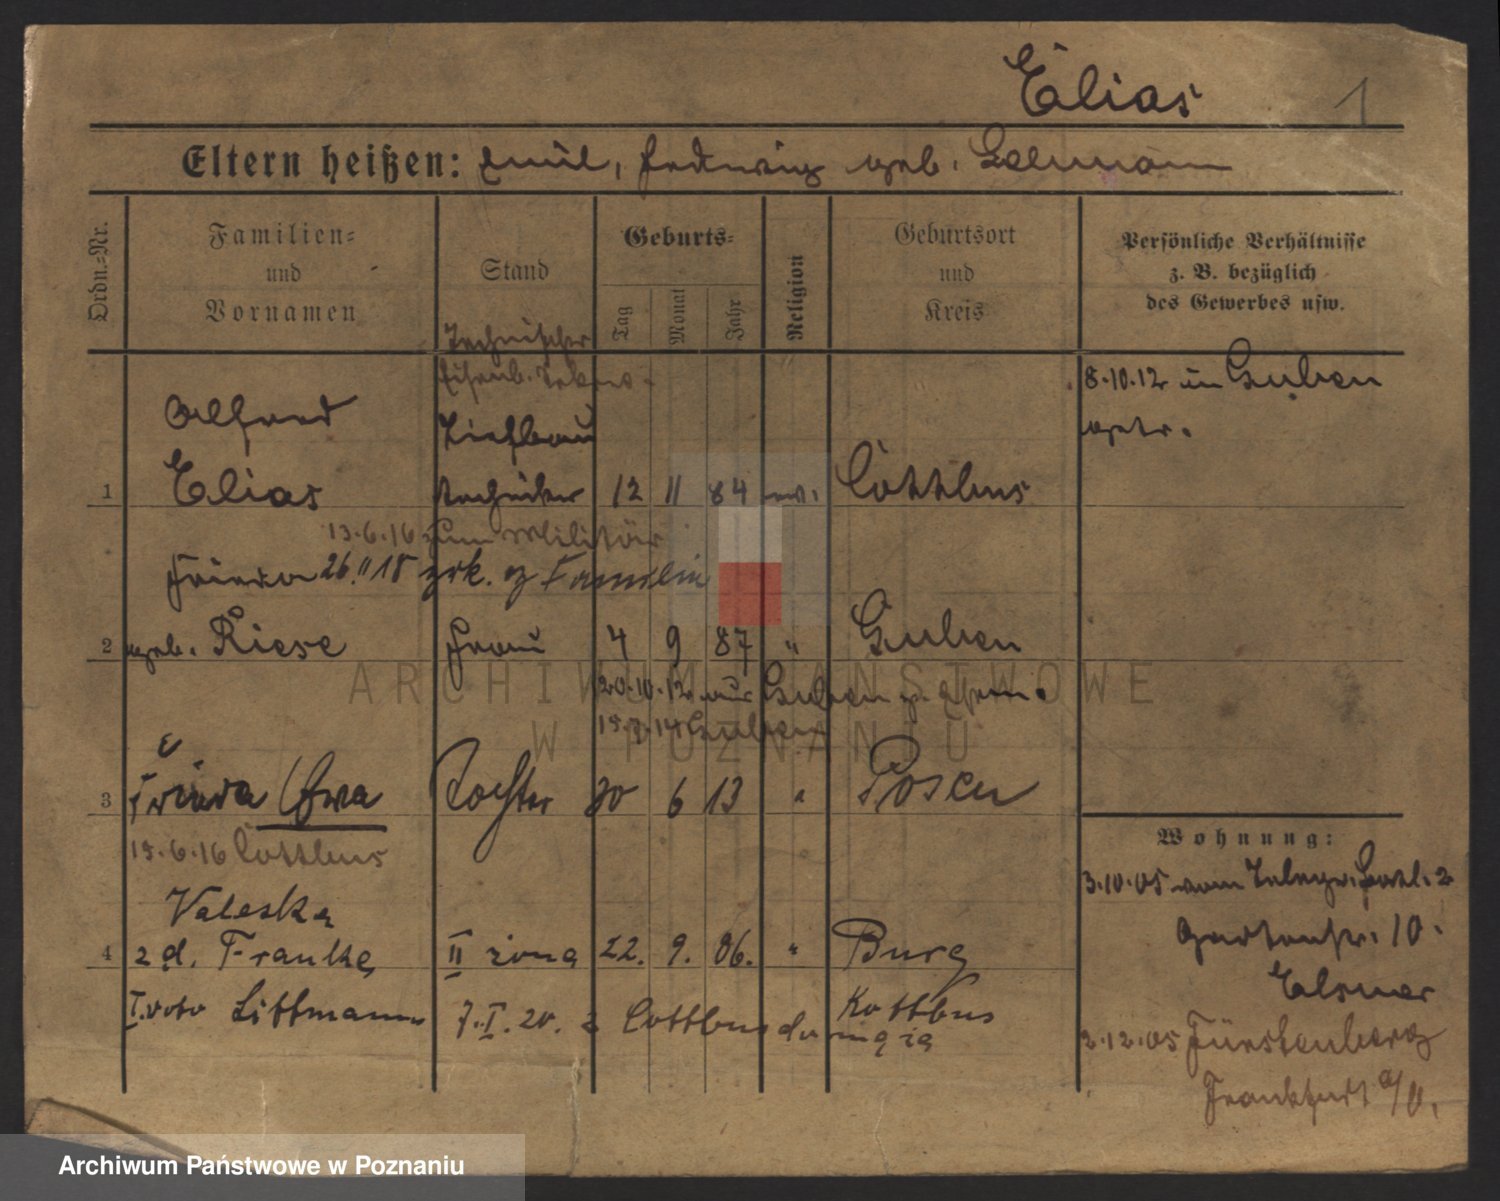 Elias 1
Eltern heißen: Emil, Hedwig geb. Lehmann
Ordn.-Nr.
Familien-
und
Vornamen
Stand
Geburts-
Tag
Monat
Jahr
Religion
Geburtsort
und
Kreis
Persönliche Verhältnisse
z. B. bezüglich
des Gewerbes usw.
Technischer
Eisenb.
8.10.12 in Guben
getr.
Alfred
Tiefbau
1 Elias techniker 12 11 84 ev. Cottbus
13.6.16 zum Militär
Frieda 26.11 18 zrk. z Familie
2 geb. Riese Frau 4 9 87 " Guben
20.10.12 aus Guben z. Ehem.
Guben
3 Frieda (Ewa Tochter 20 6 13 " Posen
15.6.16 Cottbus
Wohnung:
3.10.05 vom
Gartenstr. 10.
Elsner
2.12.05 Fürstenberg
Frankfurt a/O.
Valeska
4 z d. Franke II żona 22. 9. 06. " Burg
I. voto Littmann 7.I.20. z Cottbus do Kottbus
męża
ARCHIWUM PAŃSTWOWE
W POZNANIU
Archiwum Państwowe w Poznaniu